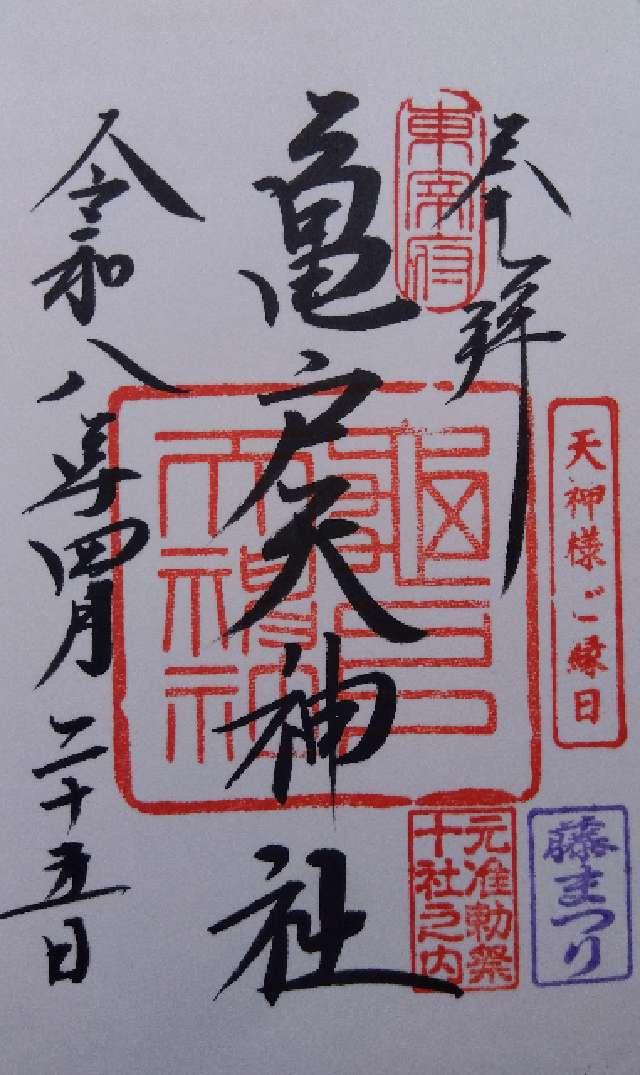 奉拝
東宰府
天神様ご縁日
藤まつり
元准勅祭
十社之内
亀戸天神社
令和八年四月二十五日